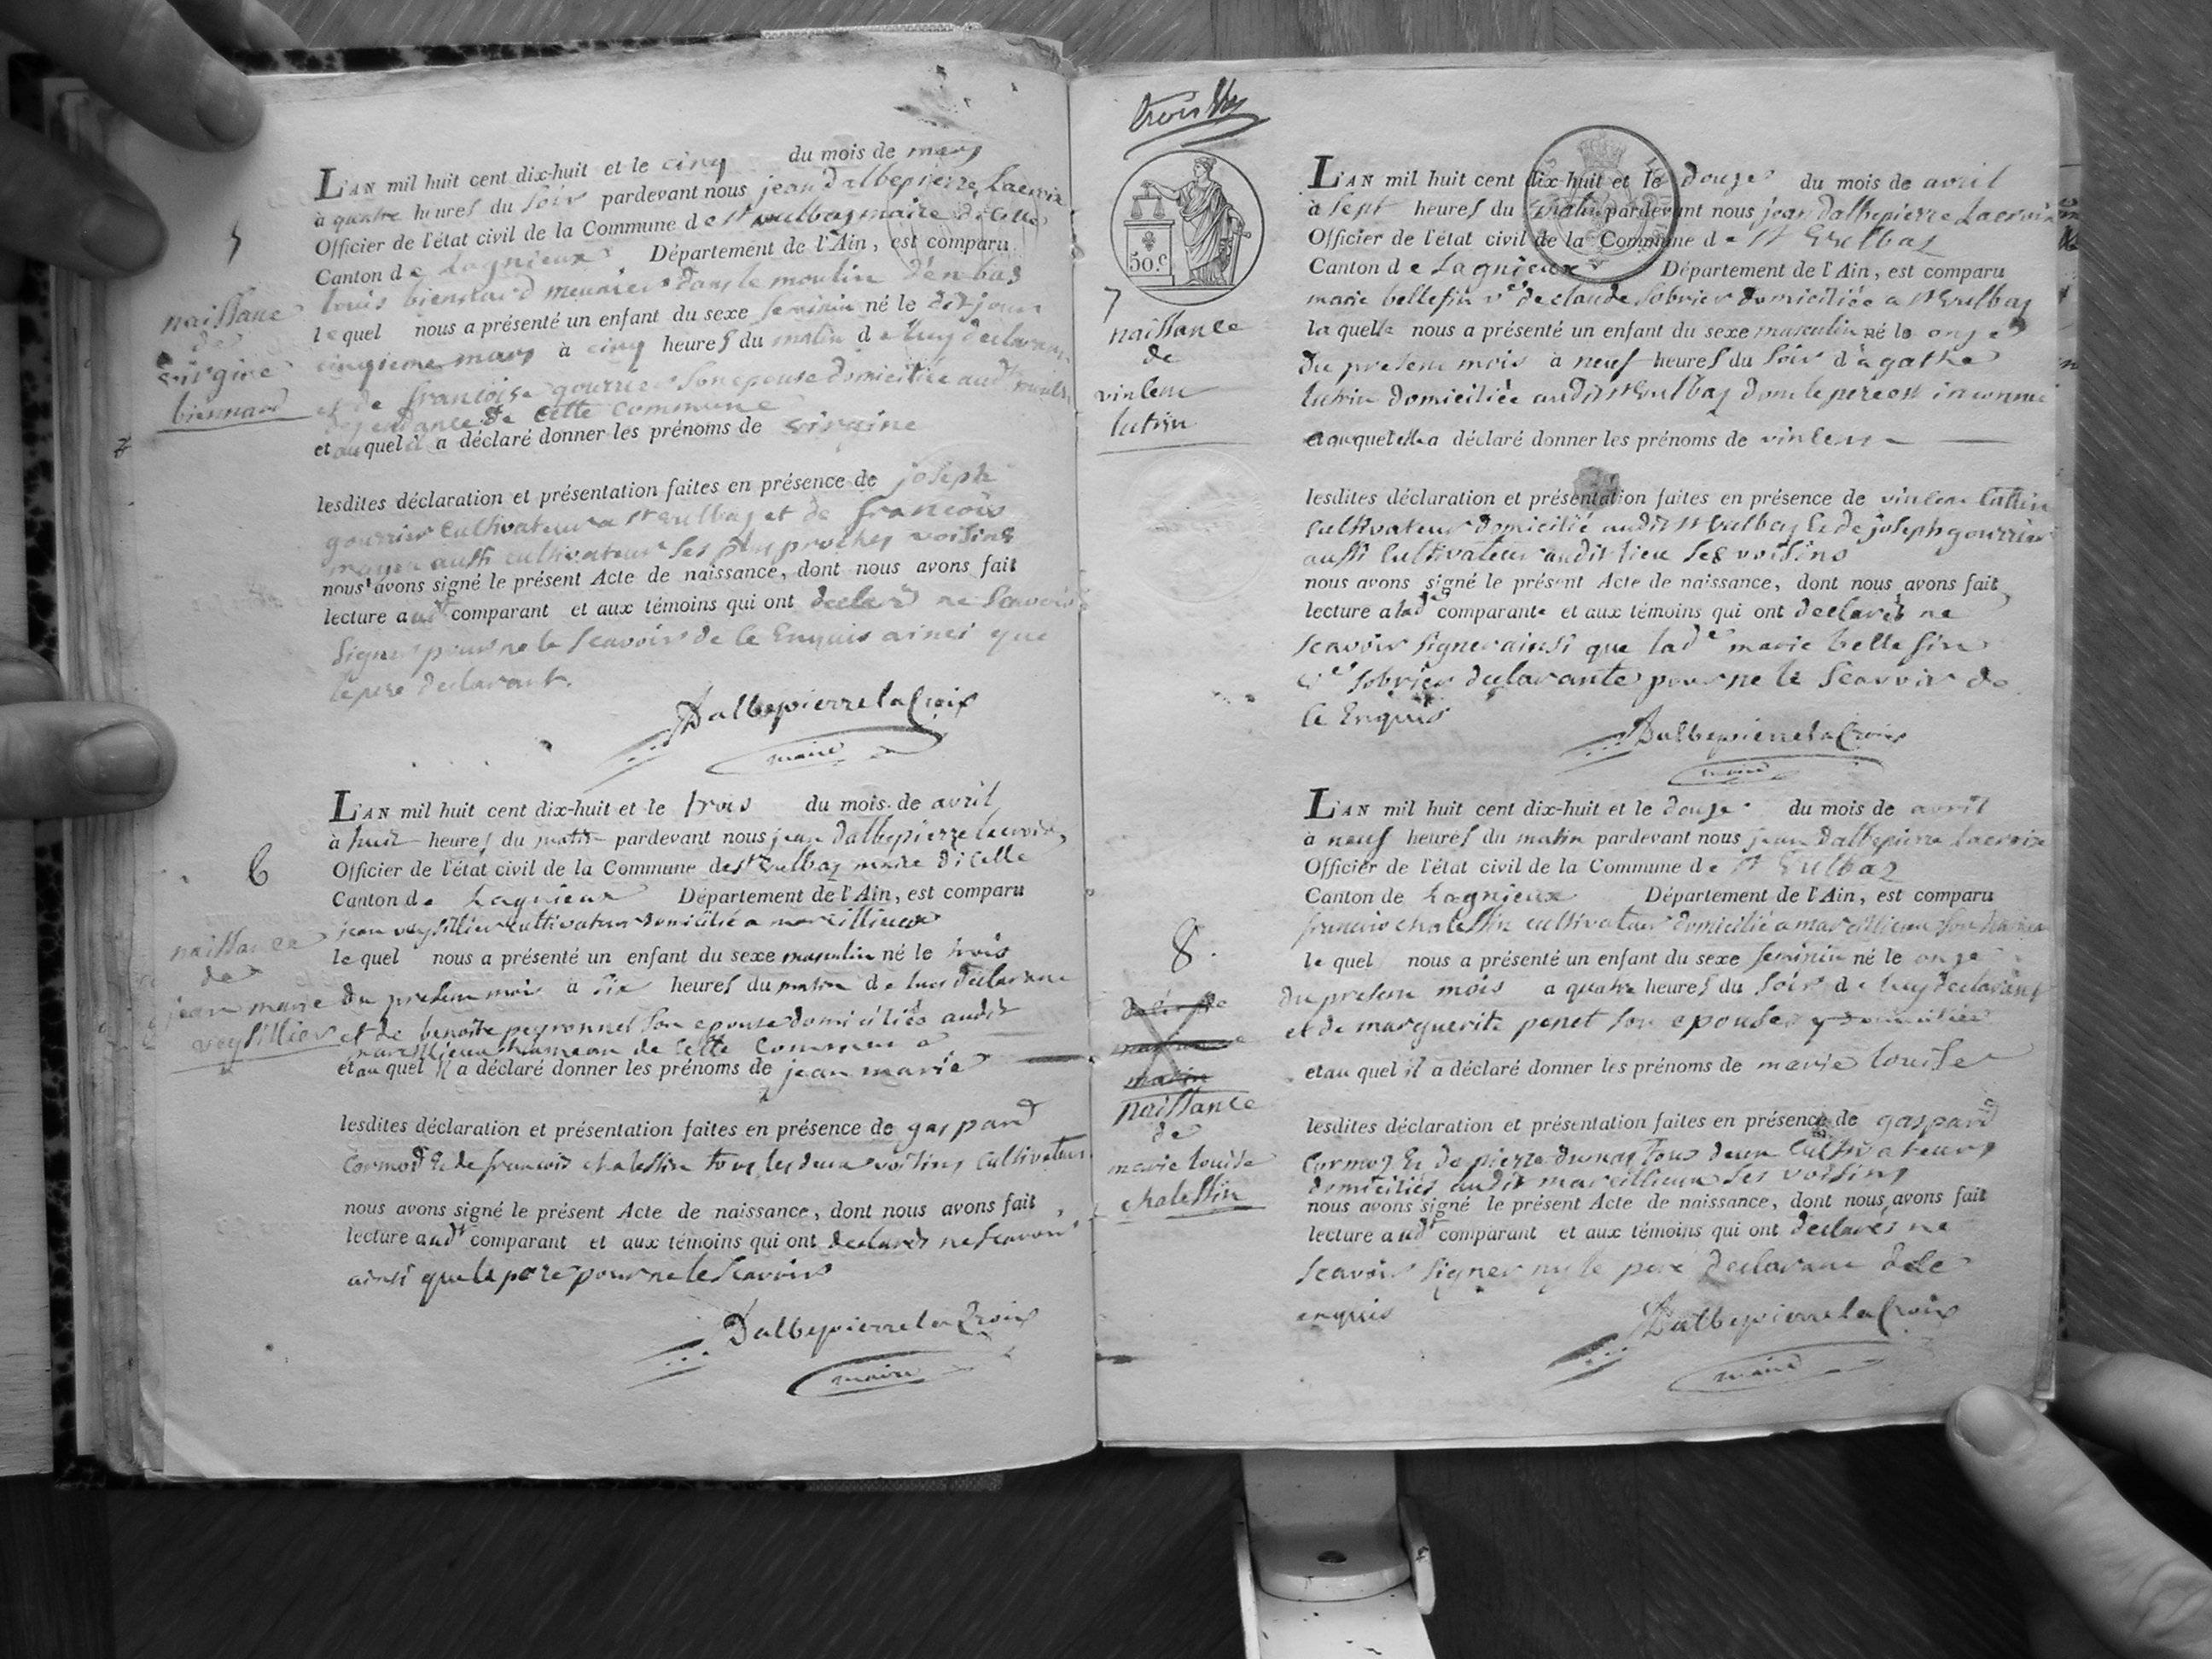 5
naissance
de
virginie
biennard
L'AN mil huit cent dix-huit et le cinq du mois de mars
à quatre heures du soir pardevant nous jean dalbepierre Lacroix
Officier de l'état civil de la Commune de st vulbas maire dicelle
Canton de Lagnieux Département de l'Ain, est comparu
louis meunier dans le moulin d'en bas
lequel nous a présenté un enfant du sexe feminin né le dit jour
cinqieme mars à cinq heures du matin de luy declarant
et de francoise gourrier son epouse domiciliée audt
dependance de cette commune
et au quel il a déclaré donner les prénoms de
lesdites déclaration et présentation faites en présence de joseph
gourrier cultivateur a st vulbas et de francois
mayen aussi cultivateur ses plus proches voisins
nous avons signé le présent Acte de naissance, dont nous avons fait
lecture audt comparant et aux témoins qui ont declaré ne scavoir
signer pour ne le scavoir de ce enquis ainci que
le pere declarant.
Dalbepierre la Croix
maire
6
naissance
de
jean marie
veysillier
L'AN mil huit cent dix-huit et le trois du mois de avril
à huit heures du matin pardevant nous jean dalbepierre lacroix,
Officier de l'état civil de la Commune de st vulbas maire dicelle
Canton de Lagnieux Département de l'Ain, est comparu
jean veysillier cultivateur domicilié a marcillieux
lequel nous a présenté un enfant du sexe masculin né le trois
du present mois à six heures du matin de luy declarant
et de benoite peyronnet son epouse domiciliée audit
marcillieux hameau de cette commune
et au quel il a déclaré donner les prénoms de jean marie
lesdites déclaration et présentation faites en présence de gaspard
Cormod & de francois chalessin tous les deux voisins cultivateurs
nous avons signé le présent Acte de naissance, dont nous avons fait
lecture audt comparant et aux témoins qui ont declarés ne scavoir
ainsi que le pere pour ne le scavoir
Dalbepierre la Croix
maire
trois
50 c
7
naissance
de
vincent
lutrin
L'AN mil huit cent dix-huit et le douze du mois de avril
à sept heures du matin pardevant nous jean dalbepierre Lacroix
Officier de l'état civil de la Commune de st Vulbas
Canton de Lagnieux Département de l'Ain, est comparu
marie bellefin ve de claude sobrier domiciliée a st vulbas
la quelle nous a présenté un enfant du sexe masculin né le onze
du present mois à neuf heures du soir d'agathe
lutrin domiciliée audit st vulbas dont le père est inconnu
et auquel elle a déclaré donner les prénoms de vincent
lesdites déclaration et présentation faites en présence de vincent
cultivateur domicilié audit st vulbas & de joseph gourrier
aussi cultivateur audit lieu ses voisins
nous avons signé le présent Acte de naissance, dont nous avons fait
lecture a lade comparante et aux témoins qui ont declarés ne
scavoir signer ainsi que lade marie bellefin
ve sobrier declarante pour ne le scavoir de
ce enquis
Dalbepierre la Croix
maire
8.
naissance
de
marie louise
chalessin
L'AN mil huit cent dix-huit et le douze du mois de avril
à neuf heures du matin pardevant nous jean dalbepierre lacroix
Officier de l'état civil de la Commune de st Vulbas
Canton de Lagnieux Département de l'Ain, est comparu
francois chalessin cultivateur domicilié a marcillieux
lequel nous a présenté un enfant du sexe feminin né le onze
du present mois a quatre heures du soir de luy declarant
et de marguerite penet son epouse
et au quel il a déclaré donner les prénoms de marie louise
lesdites déclaration et présentation faites en présence de gaspard
Cormod & de pierre dumas tous deux cultivateurs
domiciliés audit marcillieux ses voisins
nous avons signé le présent Acte de naissance, dont nous avons fait
lecture audt comparant et aux témoins qui ont declarés ne
scavoir signer ny le pere declarant de ce
enquis
Dalbepierre la Croix
maire